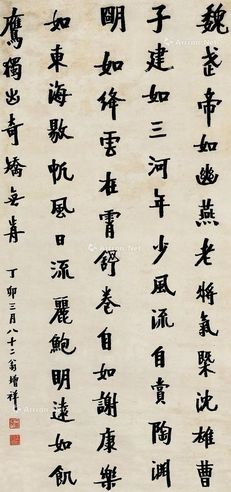 魏武帝如幽燕老將氣槩沈雄曹
子建如三河年少風流自賞陶淵
明如絳雲在霄舒卷自如謝康樂
如東海敭帆風日流麗鮑明遠如飢
鷹獨出奇矯無歬
丁卯三月八十二翁增祥
Artron.Net